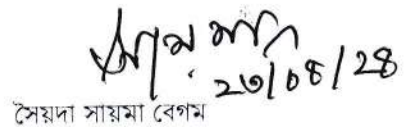 ২৩/০৪/২৪
সৈয়দা সায়মা বেগম